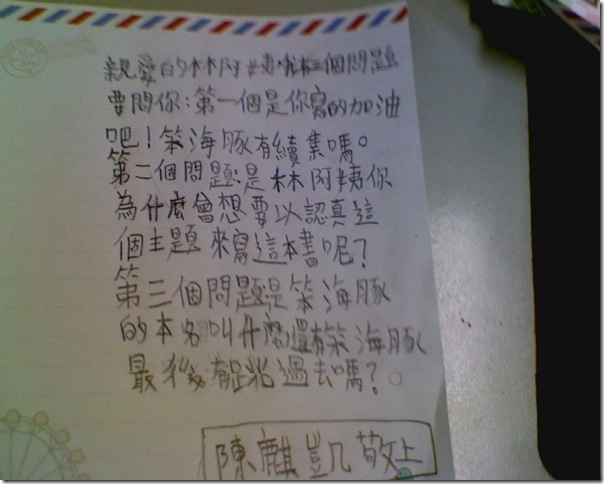 親愛的林阿姨我有三個問題
要問你:第一個是你寫的加油
吧!笨海豚有續集嗎。
第二個問題是林阿姨你
為什麼會想要以認真這
個主題來寫這本書呢?
第三個問題是笨海豚
的本名叫什麼還有笨海豚
最後有跳過去嗎?。
陳麒凱敬上